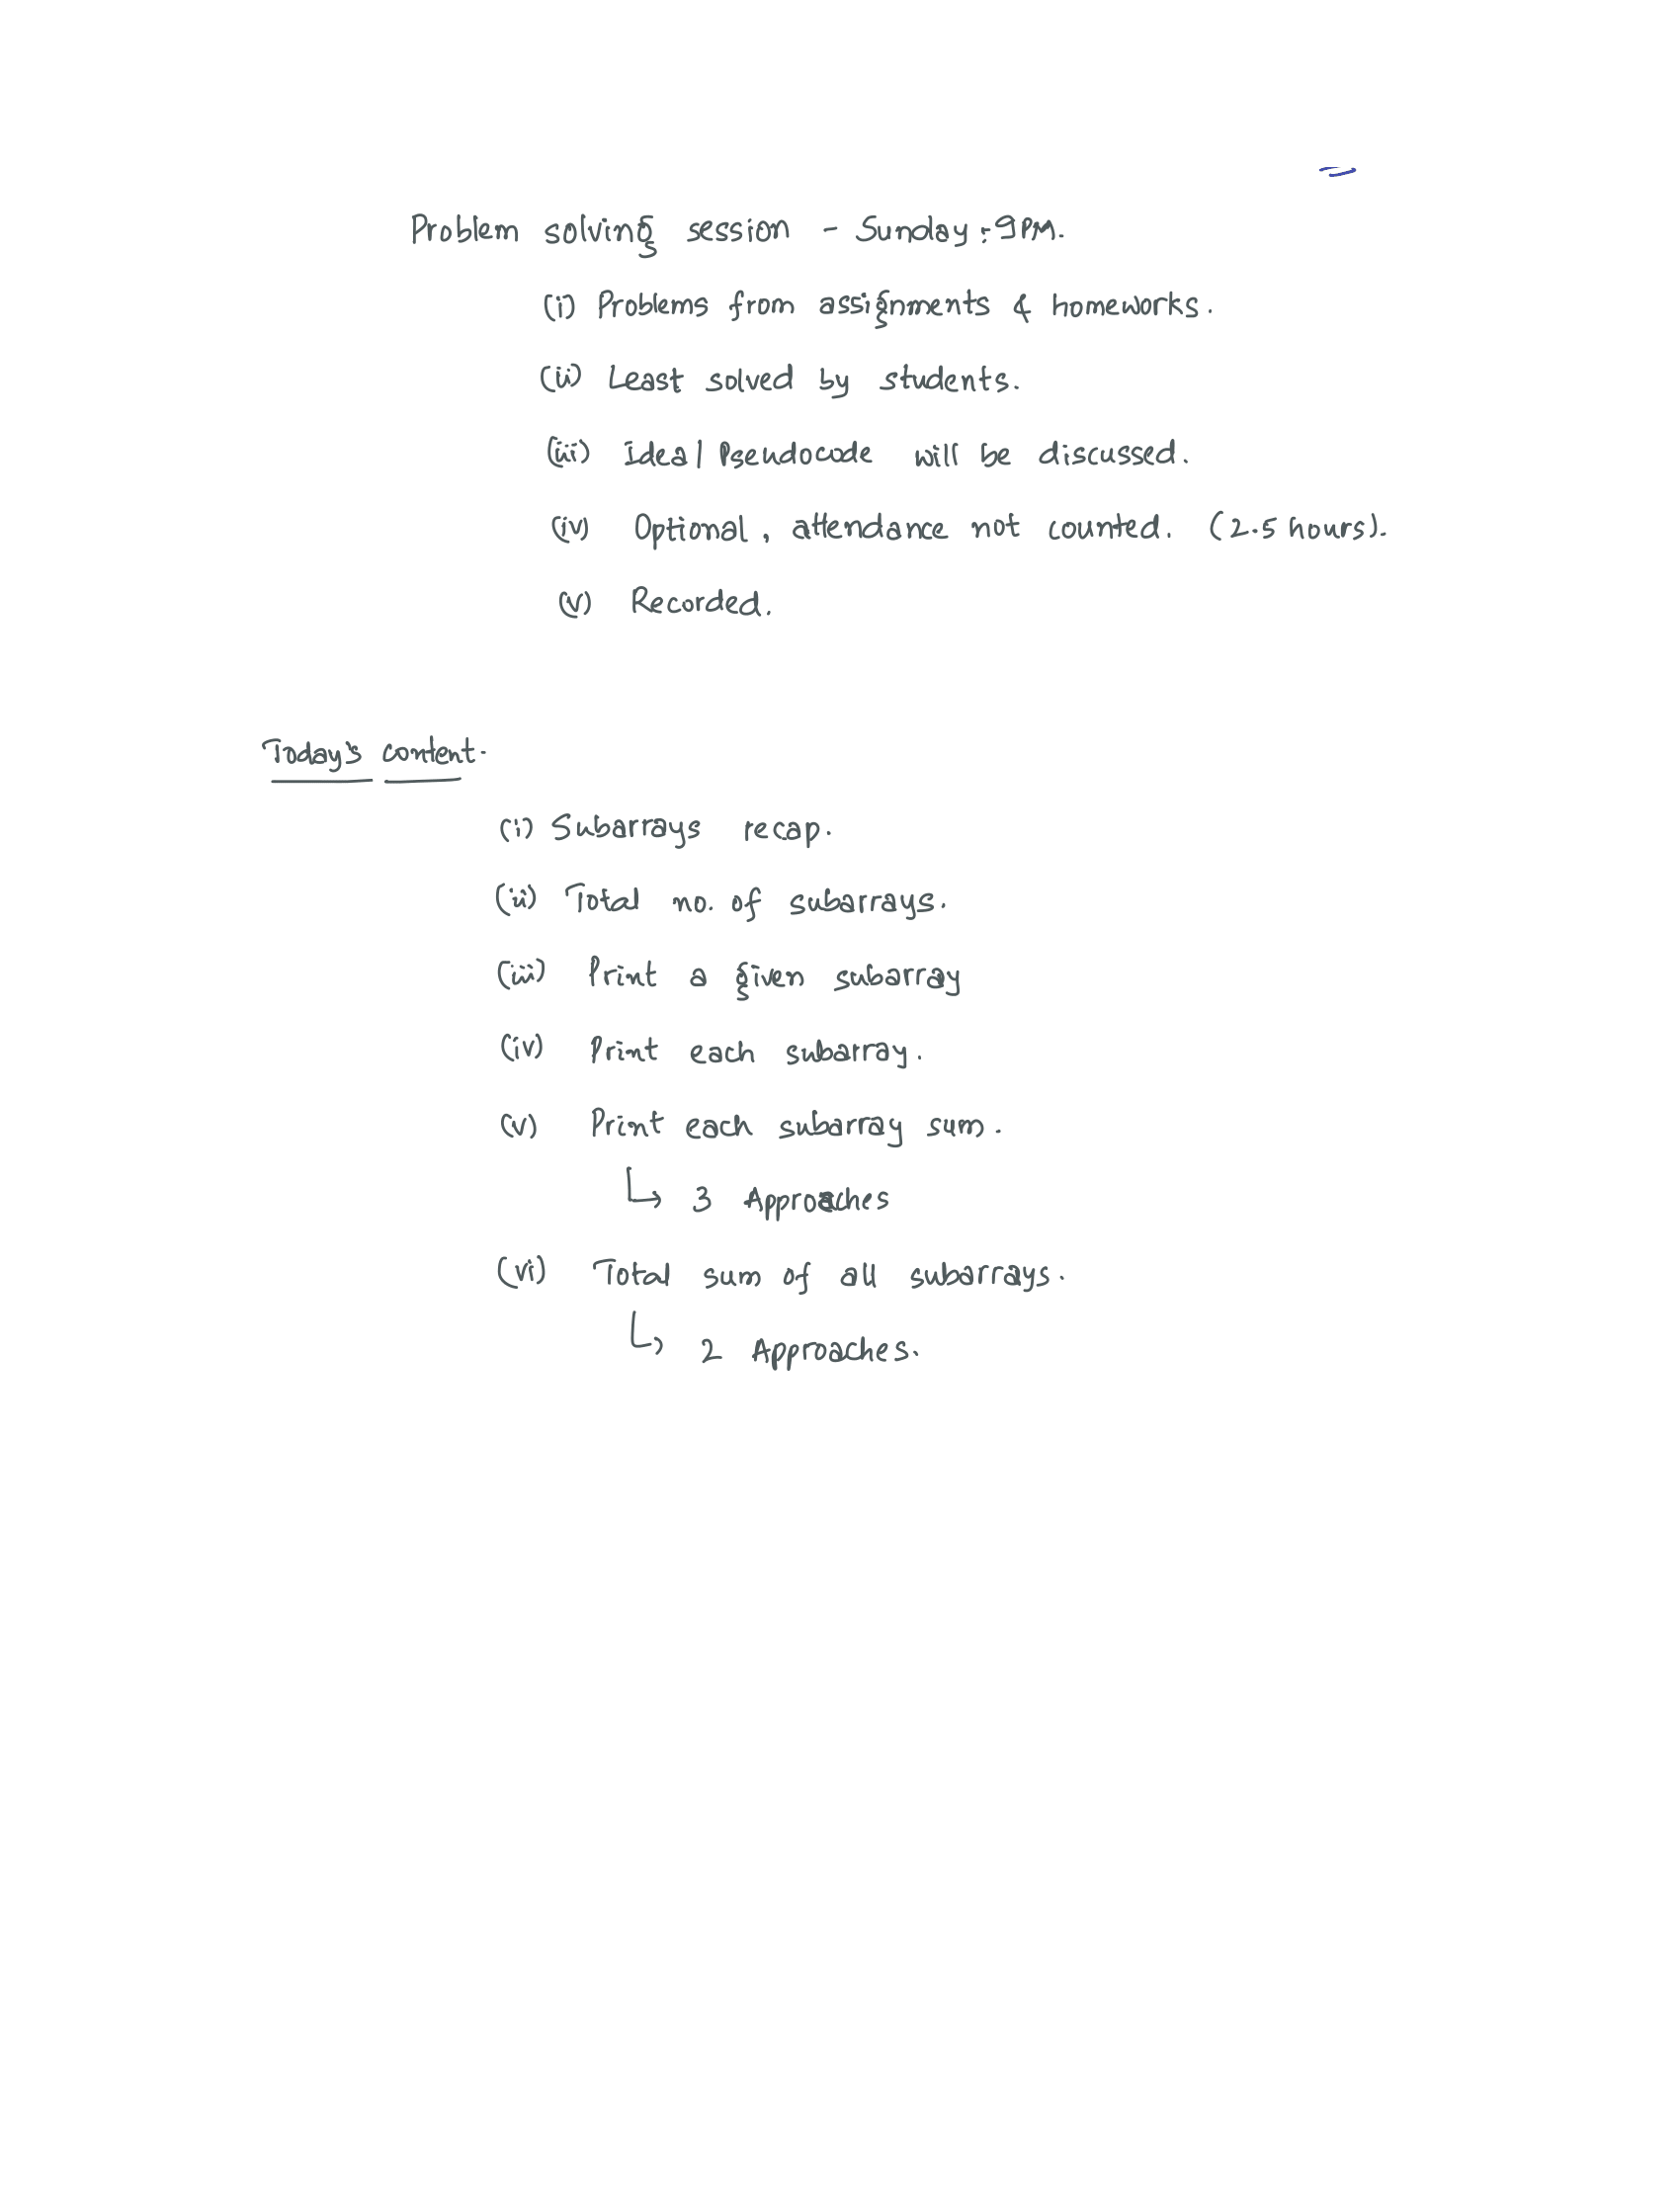 Problem solving session - Sunday : 9PM.
(i) Problems from assignments & homeworks.
(ii) Least solved by students.
(iii) Idea | Pseudocode will be discussed.
(iv) Optional, attendance not counted. (2.5 hours).
(v) Recorded.
Today's content.
(i) Subarrays recap.
(ii) Total no. of subarrays.
(iii) Print a given subarray
(iv) Print each subarray.
(v) Print each subarray sum.
↳ 3 Approaches
(vi) Total sum of all subarrays.
↳ 2 Approaches.